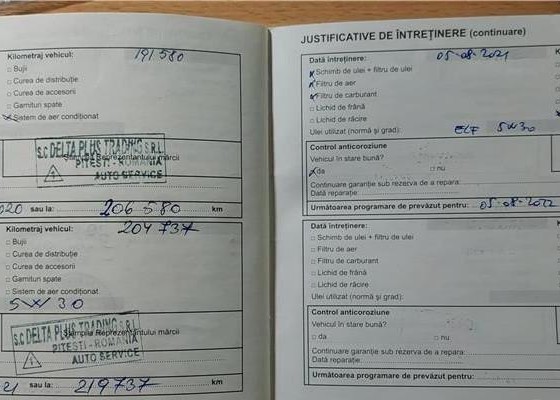 Kilometraj vehicul: 191 580
□ Bujii
□ Curea de distribuție
□ Curea de accesorii
□ Garnituri spate
Sistem de aer condiționat
S.C DELTA PLUS TRADING S.R.L
Reprezentantului mărcii
PITEȘTI - ROMANIA
AUTO SERVICE
020 sau la: 206 580 km
Kilometraj vehicul: 204 737
□ Bujii
□ Curea de distribuție
□ Curea de accesorii
□ Garnituri spate
□ Sistem de aer condiționat
5W30
S.C DELTA PLUS TRADING S.R.L
Ștampila Reprezentantului mărcii
PITEȘTI - ROMANIA
AUTO SERVICE
21 sau la: 219737 km
JUSTIFICATIVE DE ÎNTREȚINERE (continuare)
Dată întreținere: 05-08-2021
Schimb de ulei + filtru de ulei
Filtru de aer
Filtru de carburant
□ Lichid de frână
□ Lichid de răcire
Ulei utilizat (normă și grad): ELF 5W30
Control anticoroziune
Vehicul în stare bună?
da □ nu
Continuare garanție sub rezerva de a repara:
Dată reparație:
Următoarea programare de prevăzut pentru: 05-08-2022
Dată întreținere:
□ Schimb de ulei + filtru de ulei
□ Filtru de aer
□ Filtru de carburant
□ Lichid de frână
□ Lichid de răcire
Ulei utilizat (normă și grad):
Control anticoroziune
Vehicul în stare bună?
□ da □ nu
Continuare garanție sub rezerva de a repara:
Dată reparație:
Următoarea programare de prevăzut pentru: